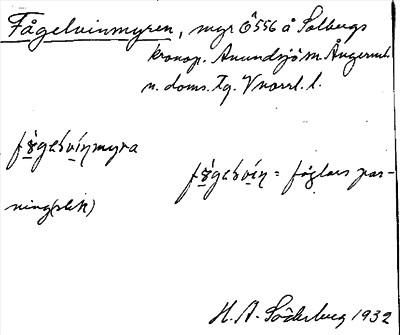 Fågelvinmyren, myr Ö 556 å Solbergs
kronop. Anundsjö sn. Ångerml.
n. doms. Tg. V norrl. l.
fögelvínmyra
fögelvín = foglars par-
ning(slek)
H. A. Söderberg 1932